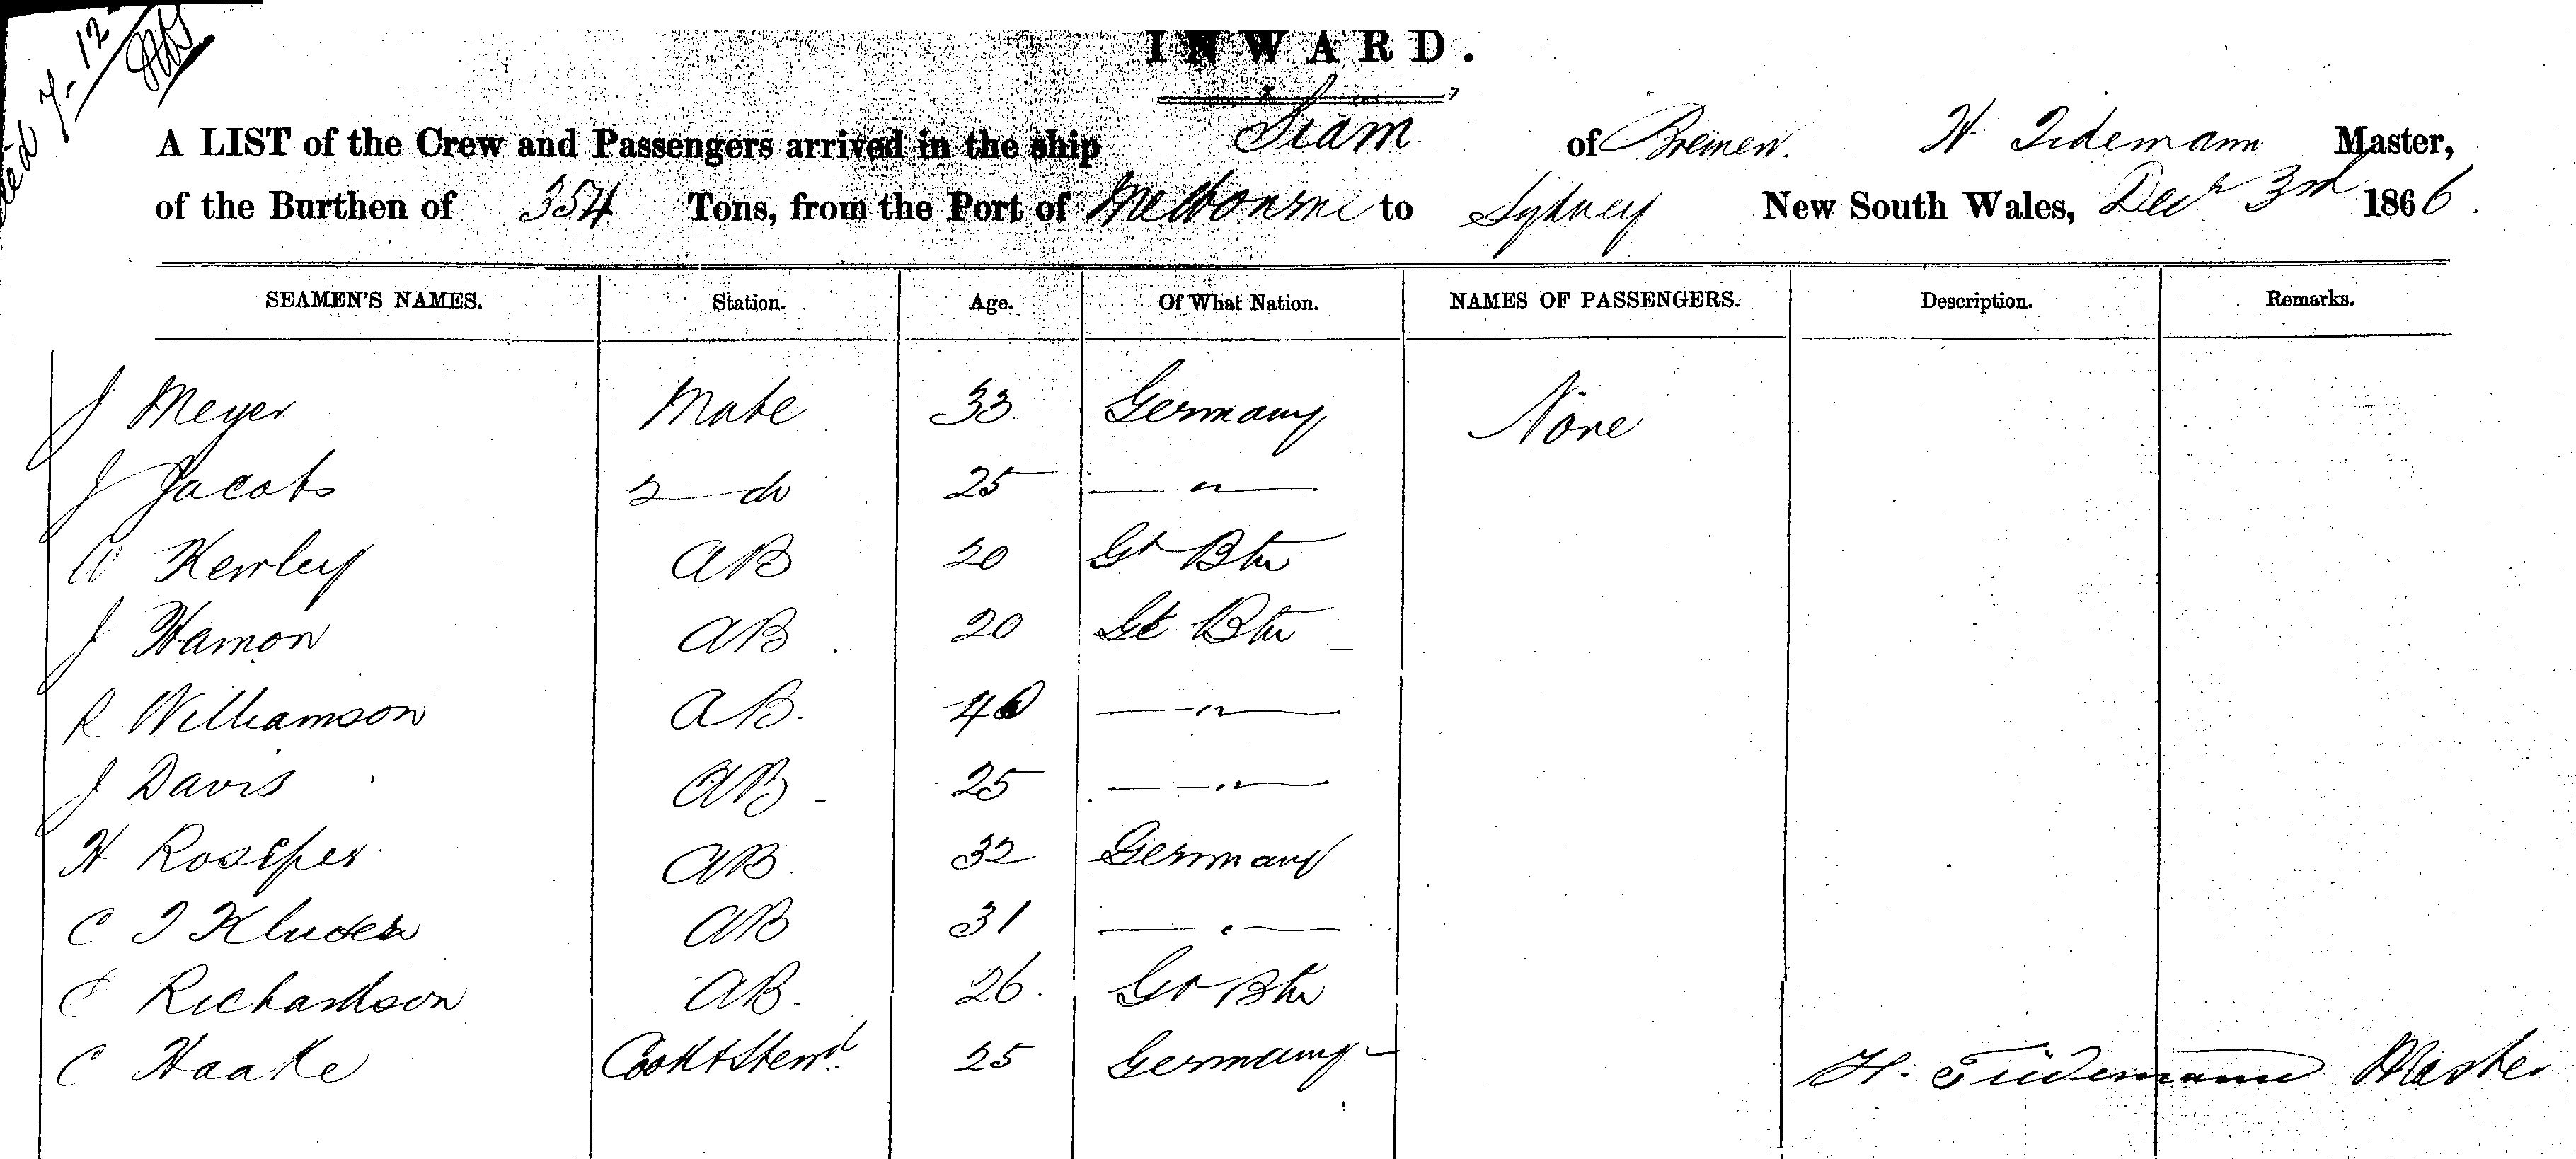 7-12
INWARD.
A LIST of the Crew and Passengers arrived in the ship Siam of Bremen. H Tidemann Master,
of the Burthen of 354 Tons, from the Port of Melbourne to Sydney New South Wales, Decr 3rd 1866.
SEAMEN'S NAMES. Station. Age. Of What Nation. NAMES OF PASSENGERS. Description. Remarks.
J Meyer Mate 33 Germany None
J Jacobs 2 — do 25 — " —
W Kewley AB 20 Gt Btn
J Hamon AB 20 Gt Btn
R Williamson AB. 40 — " —
J Davis AB 25 — " —
H AB 32 Germany
C AB 31 — " —
Richardson AB 26 Gt Btn
C Haake Cook & Stewd. 25 Germany H. Tiedemann Master